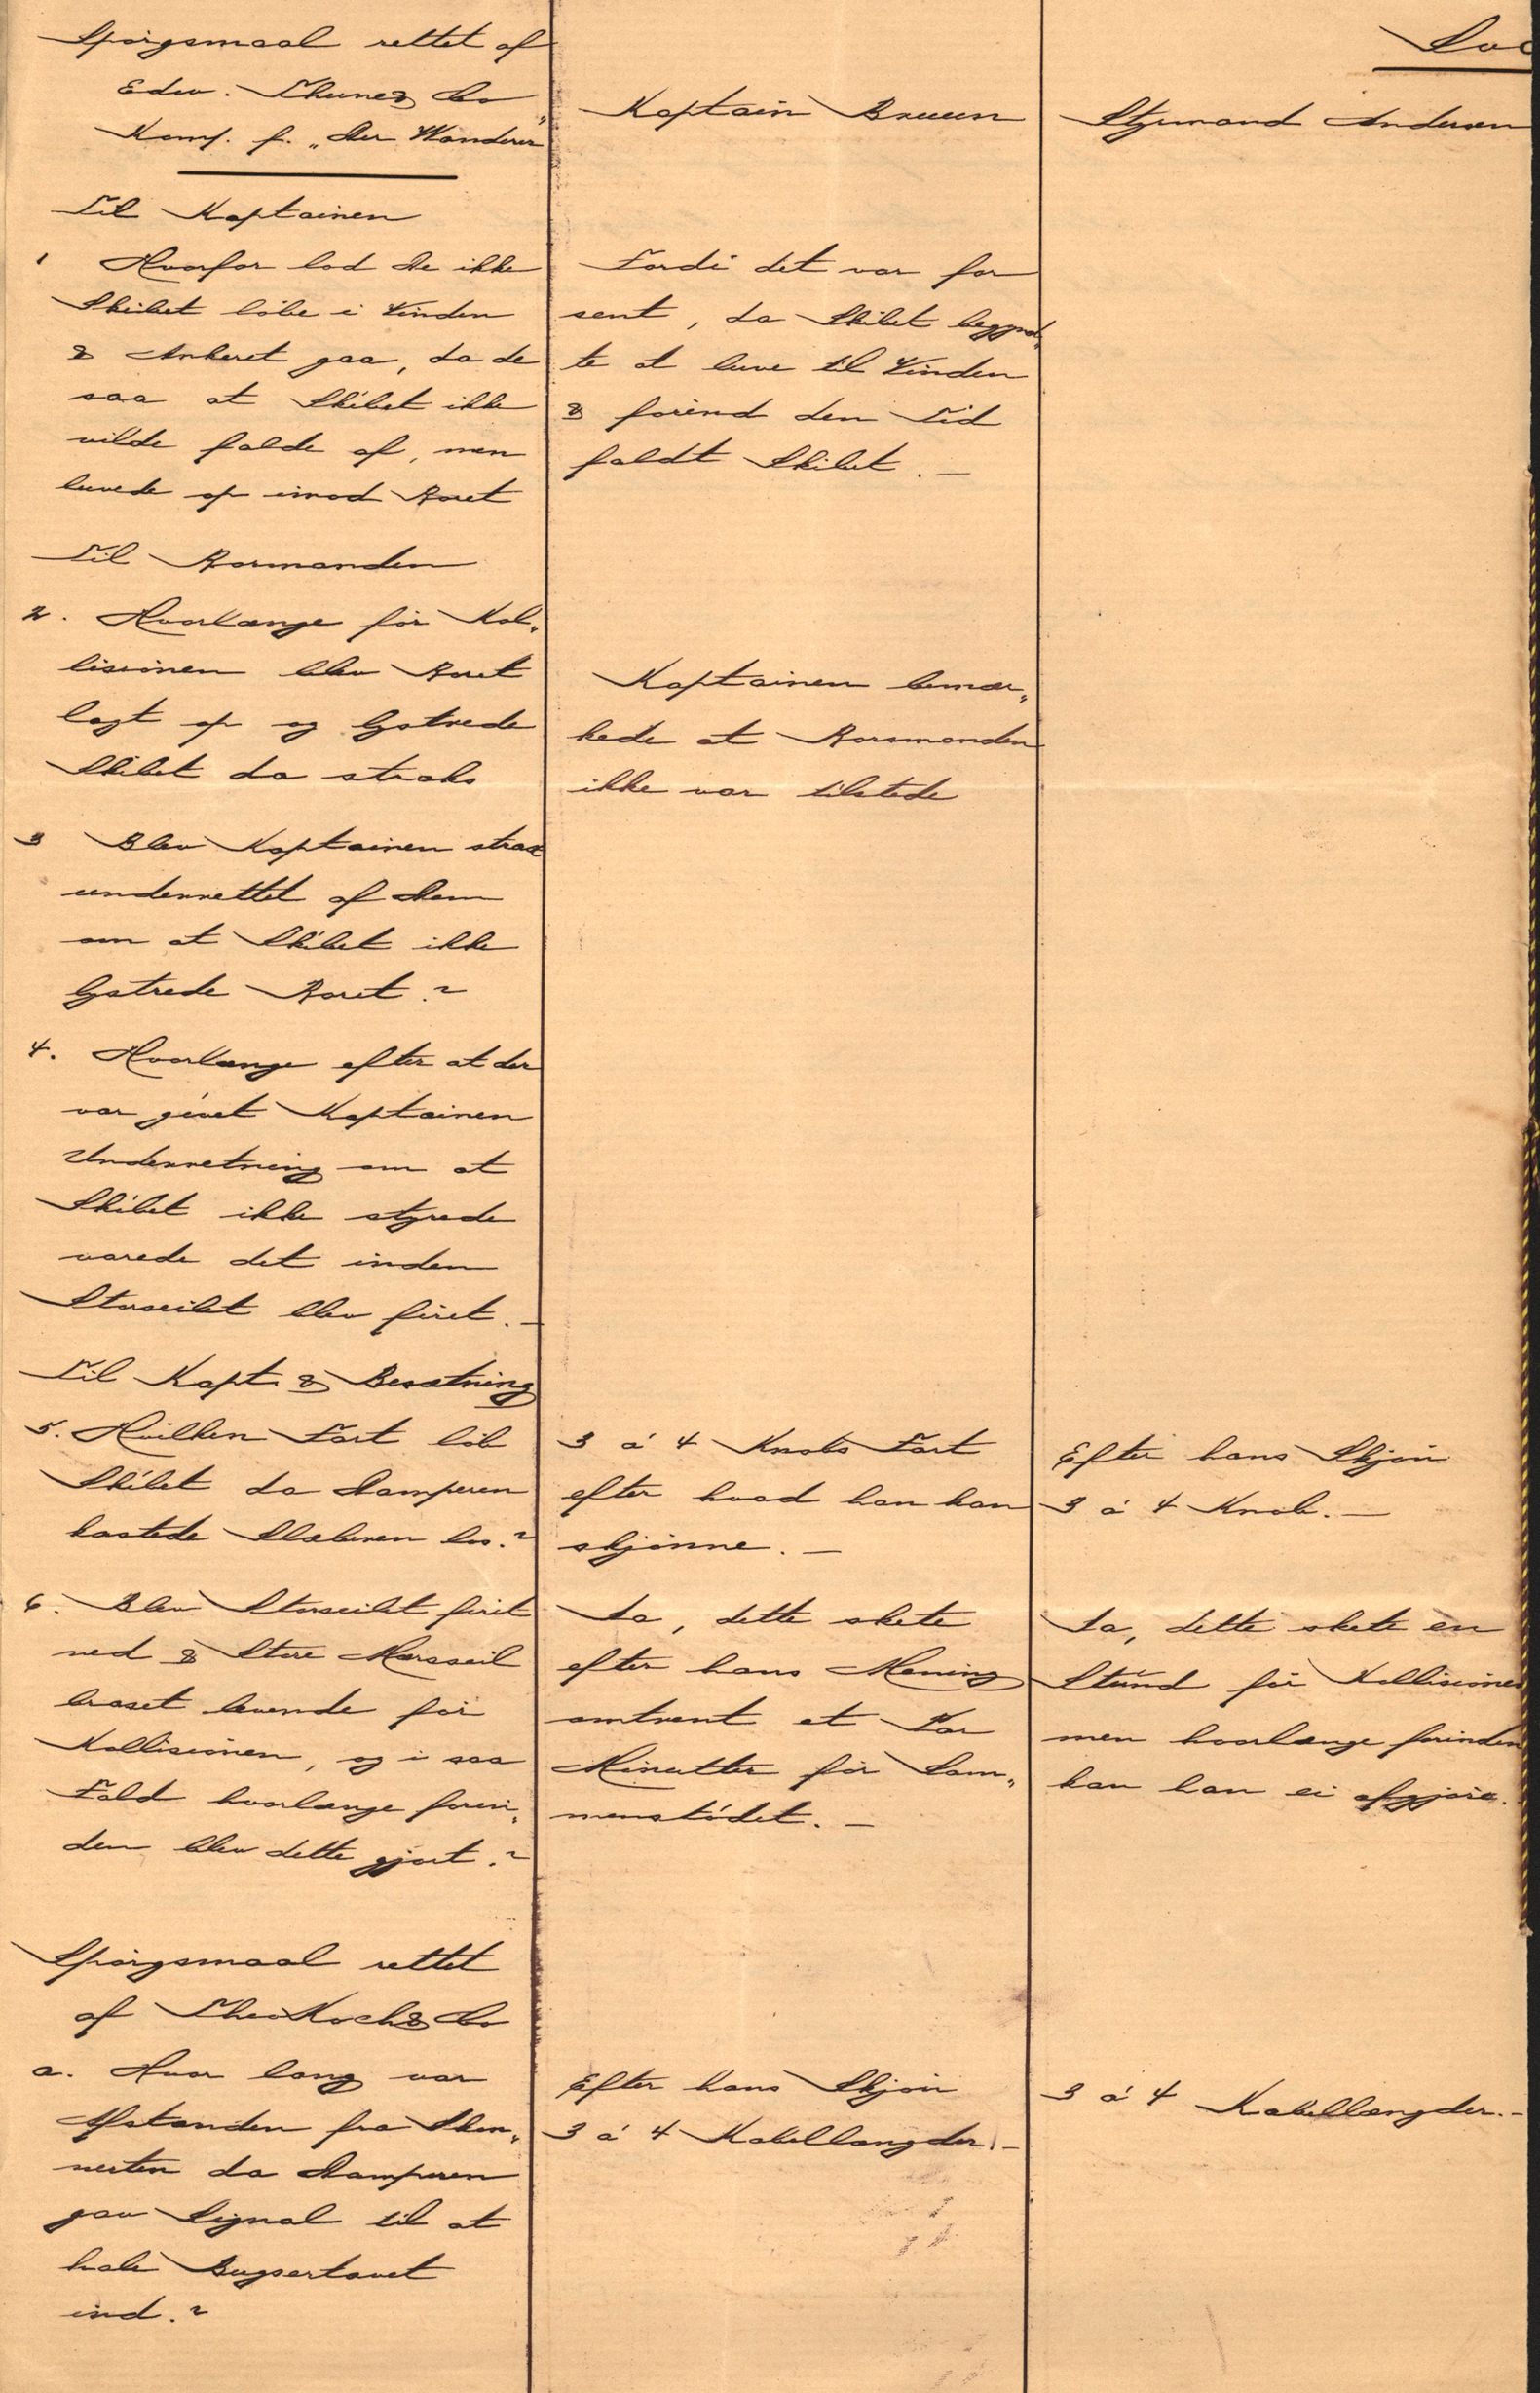 Spörgsmaal rettet af
Edw. Thune & Co
Komp. f. „Der Wanderer"
Til Kaptainen
1 Hvorfor lod De ikke
Skibet löbe i Vinden
& Ankeret gaa, da de
saa at Skibet ikke
vilde falde af, men
luvede op imod Roret
Til Rormanden
2. Hvorlænge för Kol„
lisionen blev Roret
lagt op og lystrede
Skibet da straks
3 Blev Kaptainen strax
underrettet af Dem
om at Skibet ikke
lystrede Roret?
4. Hvorlænge efter at der
var givet Kaptainen
Underretning om at
Skibet ikke styrede
varede det inden
Storseilet blev firet. —
Til Kapt. & Besætning
5. Hvilken Fart löb
Skibet da Damperen
kastede Slæberen los.?
6. Blev Storseilet firet
ned & Store Mersseil
braset levende för
Kollisionen, og i saa
Fald hvorlænge forin„
den blev dette gjort.?
Spörgsmaal rettet
af Theo Koch & Co
a. Hvor lang var
Afstanden fra Skon„
nerten da Damperen
gav Signal til at
hale Bugsertauet
ind.?
Kaptain Bruun
Fordi det var for
sent, da Skibet begynd„
te at luve til Vinden
& forind den Tid
faldt Skibet. —
Kaptainen bemær„
kede at Rormanden
ikke var tilstede
3 á 4 Knobs Fart
efter hvad han kan
skjönne. —
Ja, dette skete
efter hans Mening
omtrent et Par
Minutter för Sam„
menstödet. —
Efter hans Skjön
3 á 4 Kabellængder. —
Styrmand Andersen
Efter hans Skjön
3 á 4 Knob. —
Ja, dette skete en
Stund för Kollisionen
men hvorlænge forinden
kan han ei afgjöre.
3 á 4 Kabellængder. —